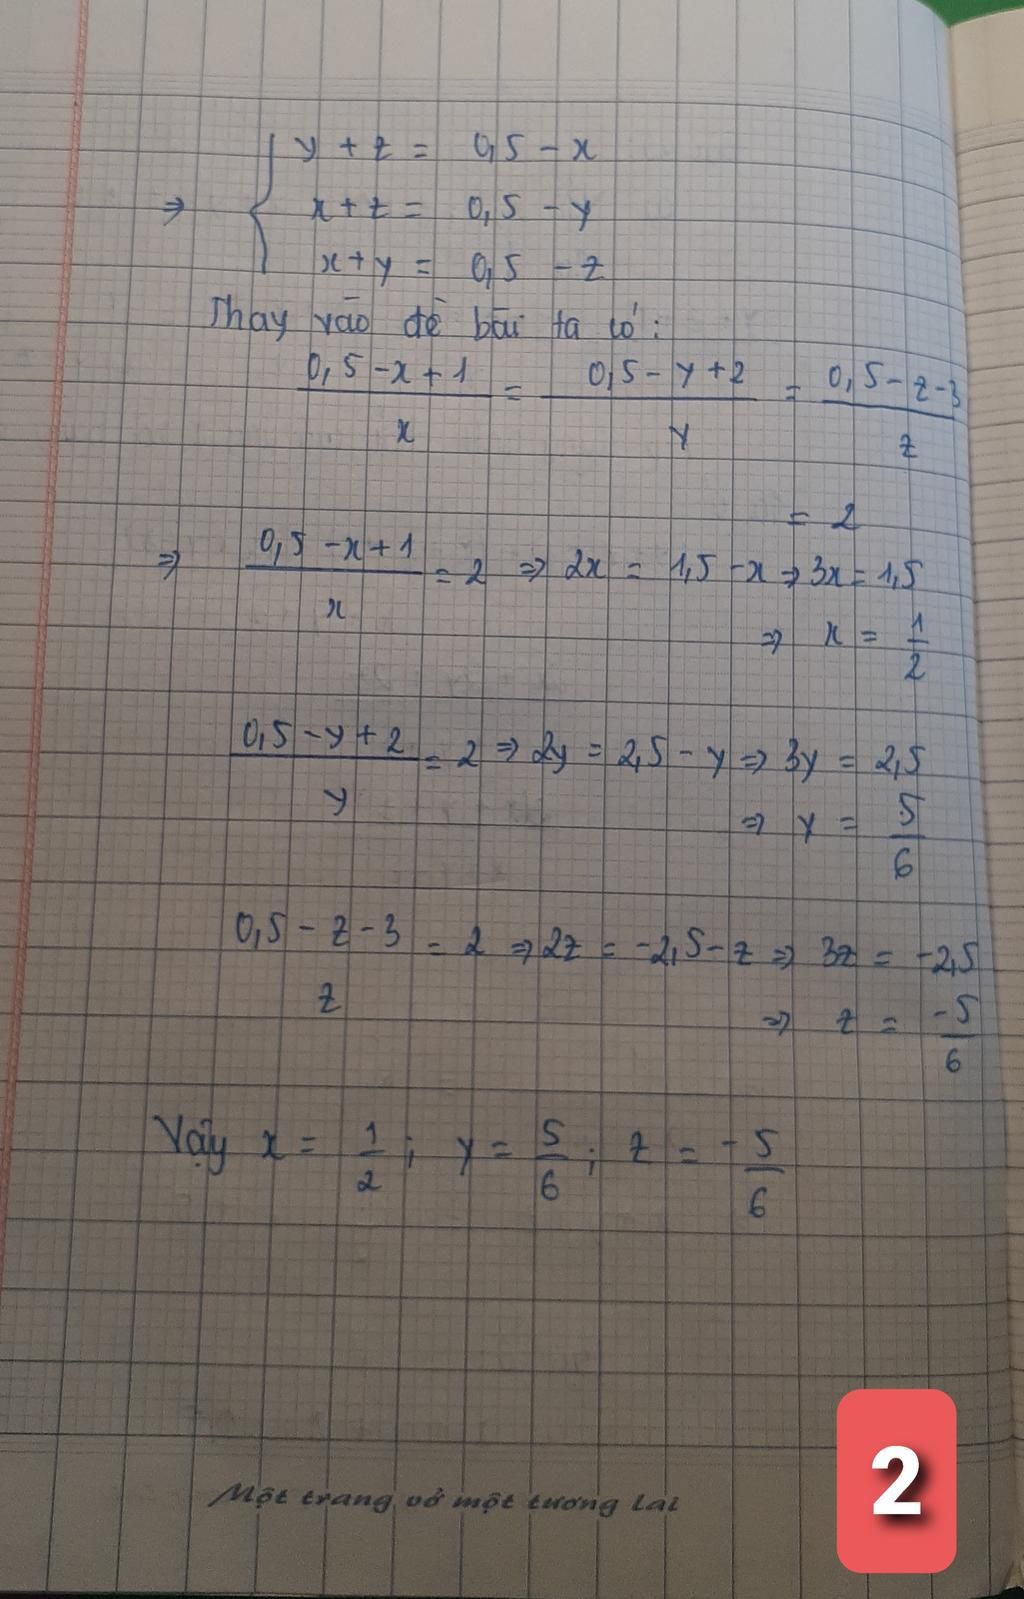 y + z = 0,5 - x
⇒ x + z = 0,5 - y
x + y = 0,5 - z
Thay vào đề bài ta có:
0,5 - x + 1 / x = 0,5 - y + 2 / y = 0,5 - z - 3 / z
= 2
⇒ 0,5 - x + 1 / x = 2 ⇒ 2x = 1,5 - x ⇒ 3x = 1,5
⇒ x = 1/2
0,5 - y + 2 / y = 2 ⇒ 2y = 2,5 - y ⇒ 3y = 2,5
⇒ y = 5/6
0,5 - z - 3 / z = 2 ⇒ 2z = -2,5 - z ⇒ 3z = -2,5
⇒ z = -5/6
Vậy x = 1/2 ; y = 5/6 ; z = -5/6
Một trang vở một tương lai
2